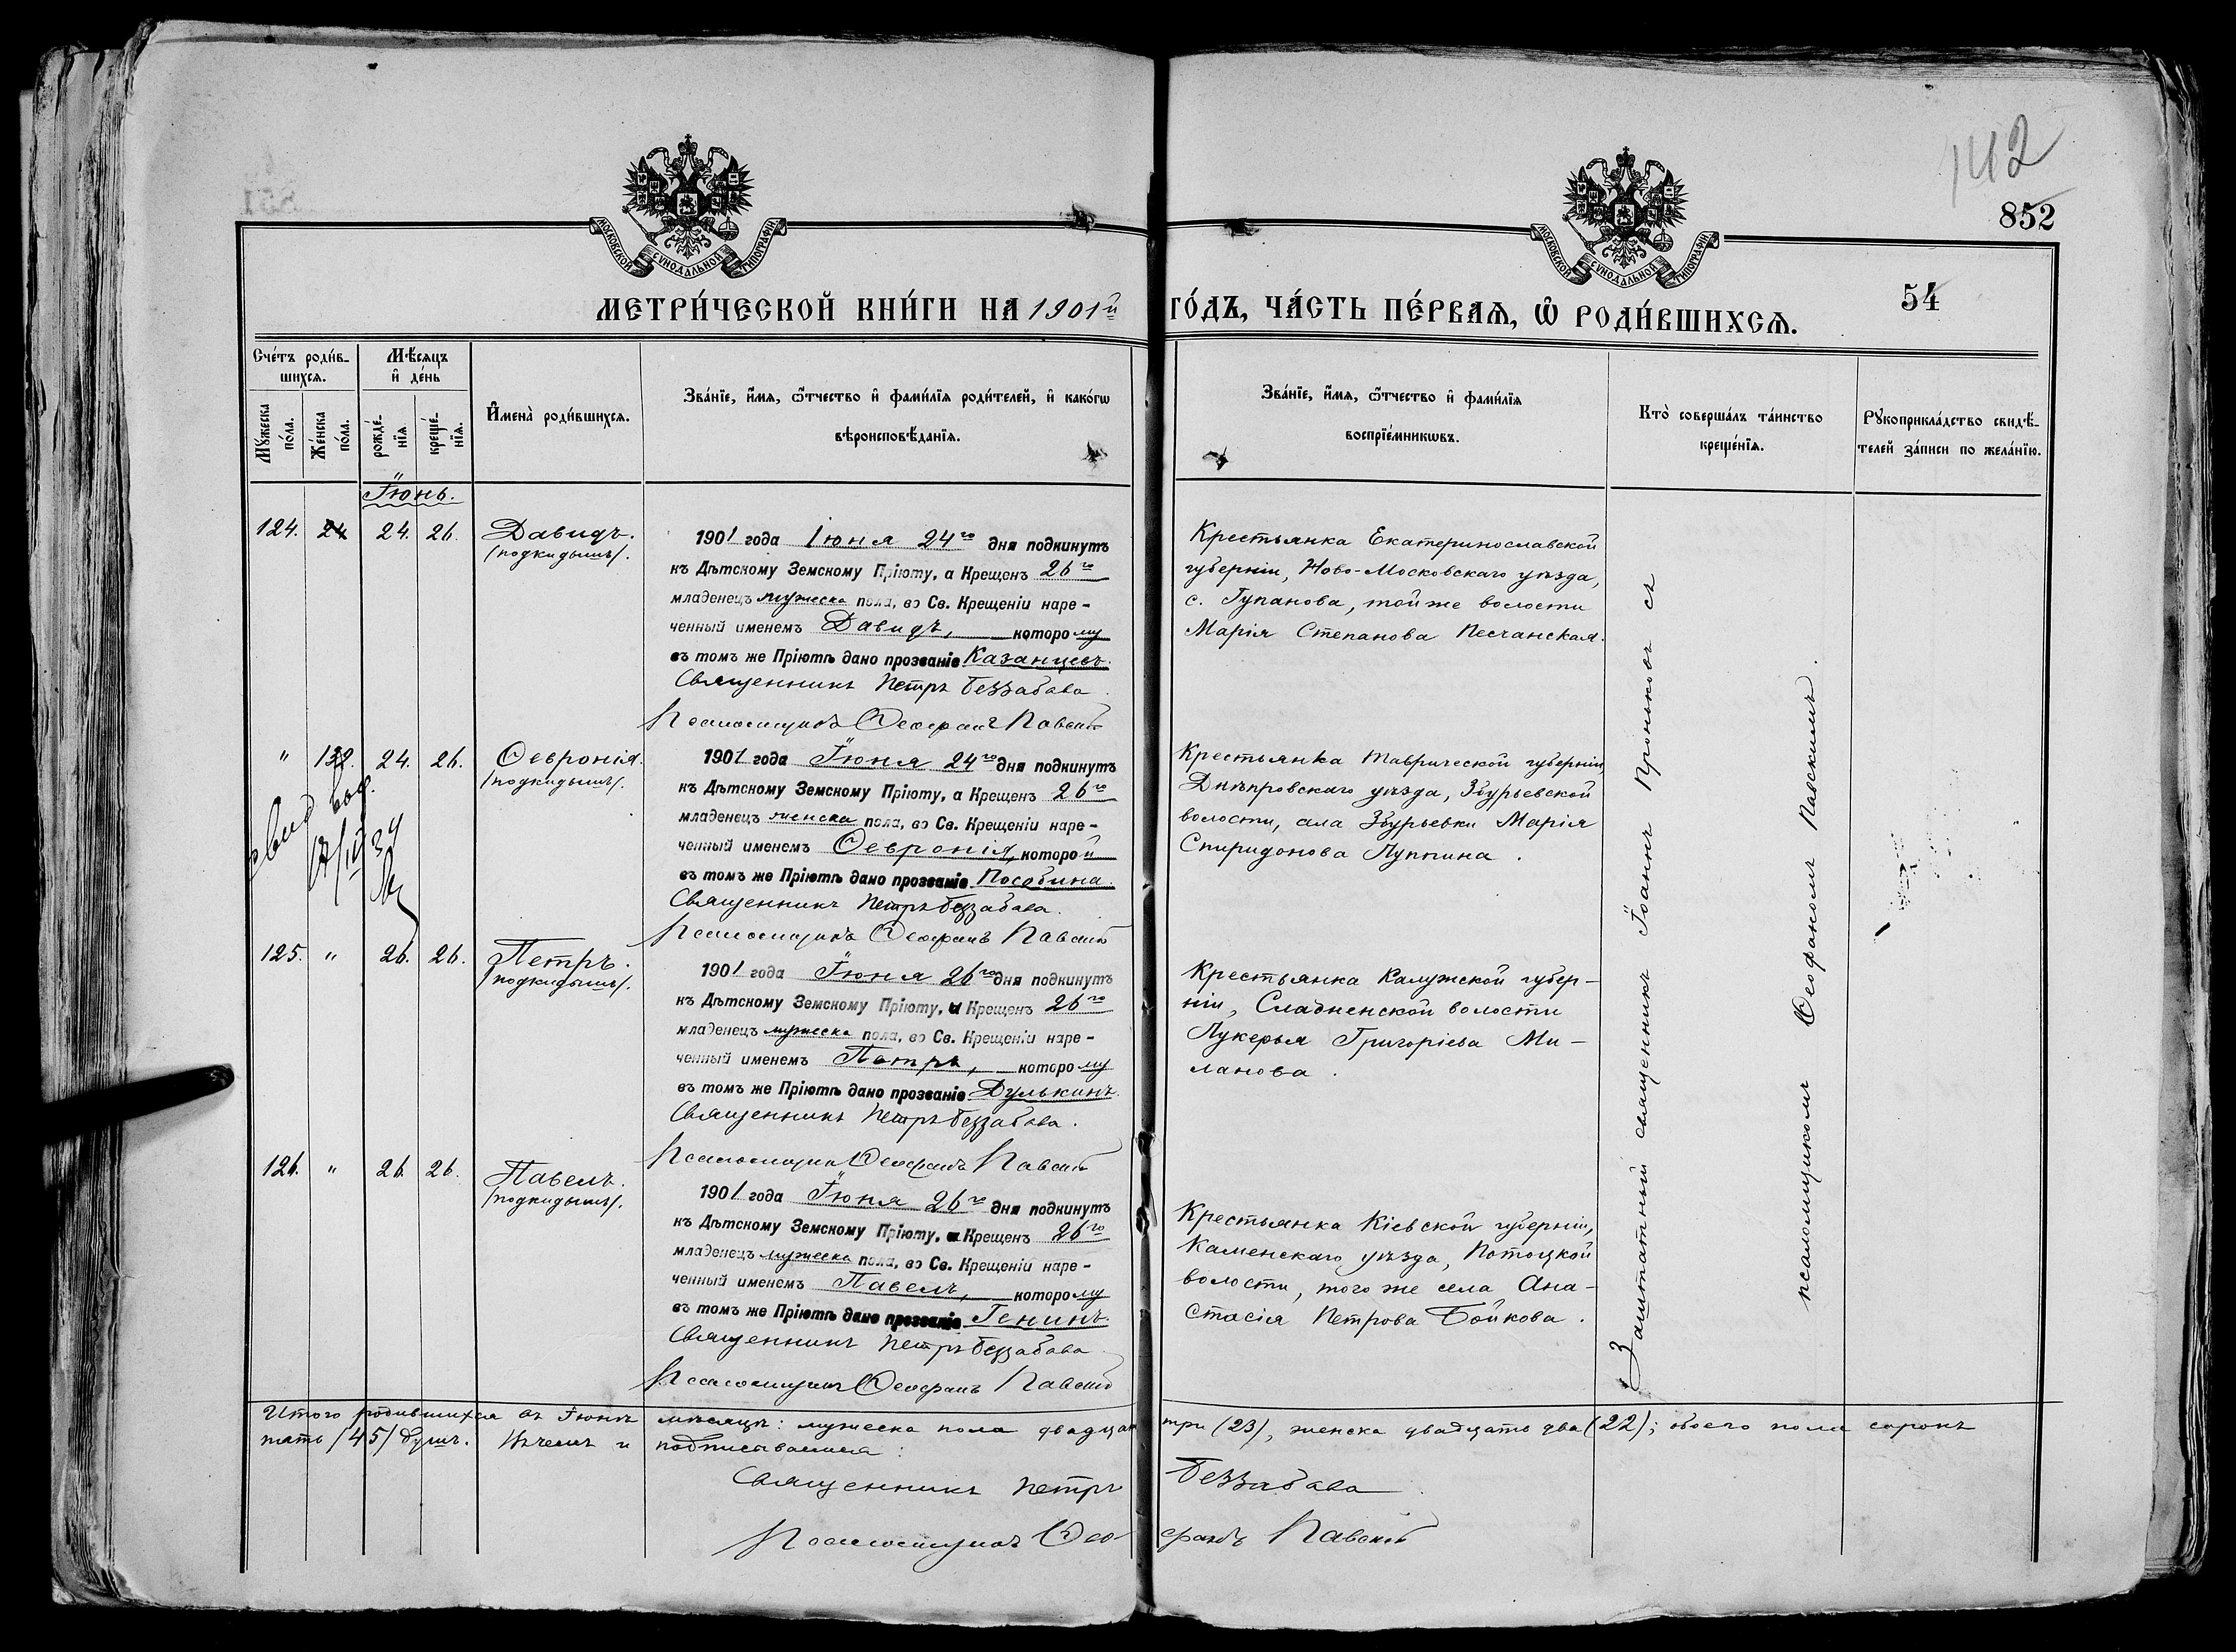 142
852
54
МОСКОВСКОЙ СѴНОДАЛЬНОЙ ТИПОГРАФІИ
МОСКОВСКОЙ СѴНОДАЛЬНОЙ ТИПОГРАФІИ
МЕТРИ́ЧЕСКОЙ КНИ́ГИ НА 1901й ГО́ДЪ, ЧА́СТЬ ПЕ́РВАѦ, Ѡ РОДИ́ВШИХСѦ.
Сче́тъ роди́в-
шихсѧ.
Мѣ́сѧцъ
и де́нь
Мꙋ́жеска по́ла.
Же́нска по́ла.
рожде́-
нїѧ
креще́-
нїѧ.
Имена̀ роди́вшихсѧ.
Зва́нїе, и́мѧ, ѻ́тчество и фами́лїѧ роди́телей, и како́гѡ
вѣроисповѣ́данїѧ.
Зва́нїе, и́мѧ, ѻ́тчество и фами́лїѧ
воспрїе́мникѡвъ.
Кто̀ соверша́лъ та́инство
креще́нїѧ.
Рꙋкоприкла́дство свидѣ́-
телей за́писи по жела́нїю.
Іюнь.
124. 24 24. 26. Давидъ.
/подкидышъ/.
1901 года Іюня 24го дня подкинутъ
къ Дѣтскому Земскому Пріюту, а Крещенъ 26го
младенецъ мужеска пола, во Св. Крещеніи наре-
ченный именемъ Давидъ, которому
въ томъ же Пріютѣ дано прозваніе Казанцевъ.
Священникъ Петръ Беззабава.
Псаломщикъ Ѳеофанъ Павскій
Крестьянка Екатеринославской
губерніи, Ново-Московскаго уѣзда,
с. Гупанова, той же волости
Марія Степанова Песчанская.
" 132. 24. 26. Ѳевронія.
/подкидышъ/.
1901 года Іюня 24го дня подкинутъ
къ Дѣтскому Земскому Пріюту, а Крещенъ 26го
младенецъ женска пола, во Св. Крещеніи наре-
ченный именемъ Ѳевронія, которой
въ томъ же Пріютѣ дано прозваніе Пособина.
Священникъ Петръ Беззабава.
Псаломщикъ Ѳеофанъ Павскій
Крестьянка Таврической губерніи,
Днѣпровскаго уѣзда, Збурьевской
волости, села Збурьевки Марія
Спиридонова Луппина.
125. " 26. 26. Петръ.
/подкидышъ/.
1901 года Іюня 26го дня подкинутъ
къ Дѣтскому Земскому Пріюту, а Крещенъ 26го
младенецъ мужеска пола, во Св. Крещеніи наре-
ченный именемъ Петръ, которому
въ томъ же Пріютѣ дано прозваніе Дулькинъ.
Священникъ Петръ Беззабава.
Псаломщикъ Ѳеофанъ Павскій
Крестьянка Калужской губер-
ніи, Сладненской волости
Лукерья Григоріева Ми-
ланова.
126. " 26. 26. Павелъ.
/подкидышъ/.
1901 года Іюня 26го дня подкинутъ
къ Дѣтскому Земскому Пріюту, а Крещенъ 26го
младенецъ мужеска пола, во Св. Крещеніи наре-
ченный именемъ Павелъ, которому
въ томъ же Пріютѣ дано прозваніе Генинъ.
Священникъ Петръ Беззабава
Псаломщикъ Ѳеофанъ Павскій
Крестьянка Кіевской губерніи,
Каменскаго уѣзда, Потоцкой
волости, того же села Ана-
стасія Петрова Бойкова.
Заштатный священникъ Іоаннъ Проньковъ съ
псаломщикомъ Ѳеофаномъ Павскимъ.
Итого родившихся въ Іюнѣ мѣсяцѣ: мужеска пола двадцать три (23), женска двадцать два (22); обоего пола сорокъ
пять /45/ душъ. Въ чемъ и подписываемся:
Священникъ Петръ Беззабава
Псаломщикъ Ѳеофанъ Павскій